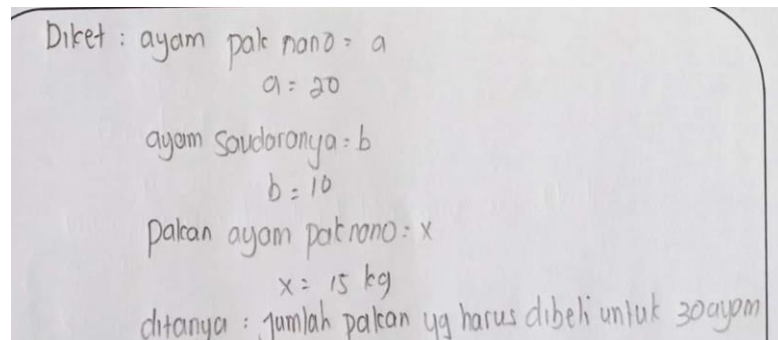 Diket : ayam pak nono = a
a = 20
ayam saudaranya = b
b = 10
pakan ayam pak nono = x
x = 15 kg
ditanya : jumlah pakan yg harus dibeli untuk 30 ayam